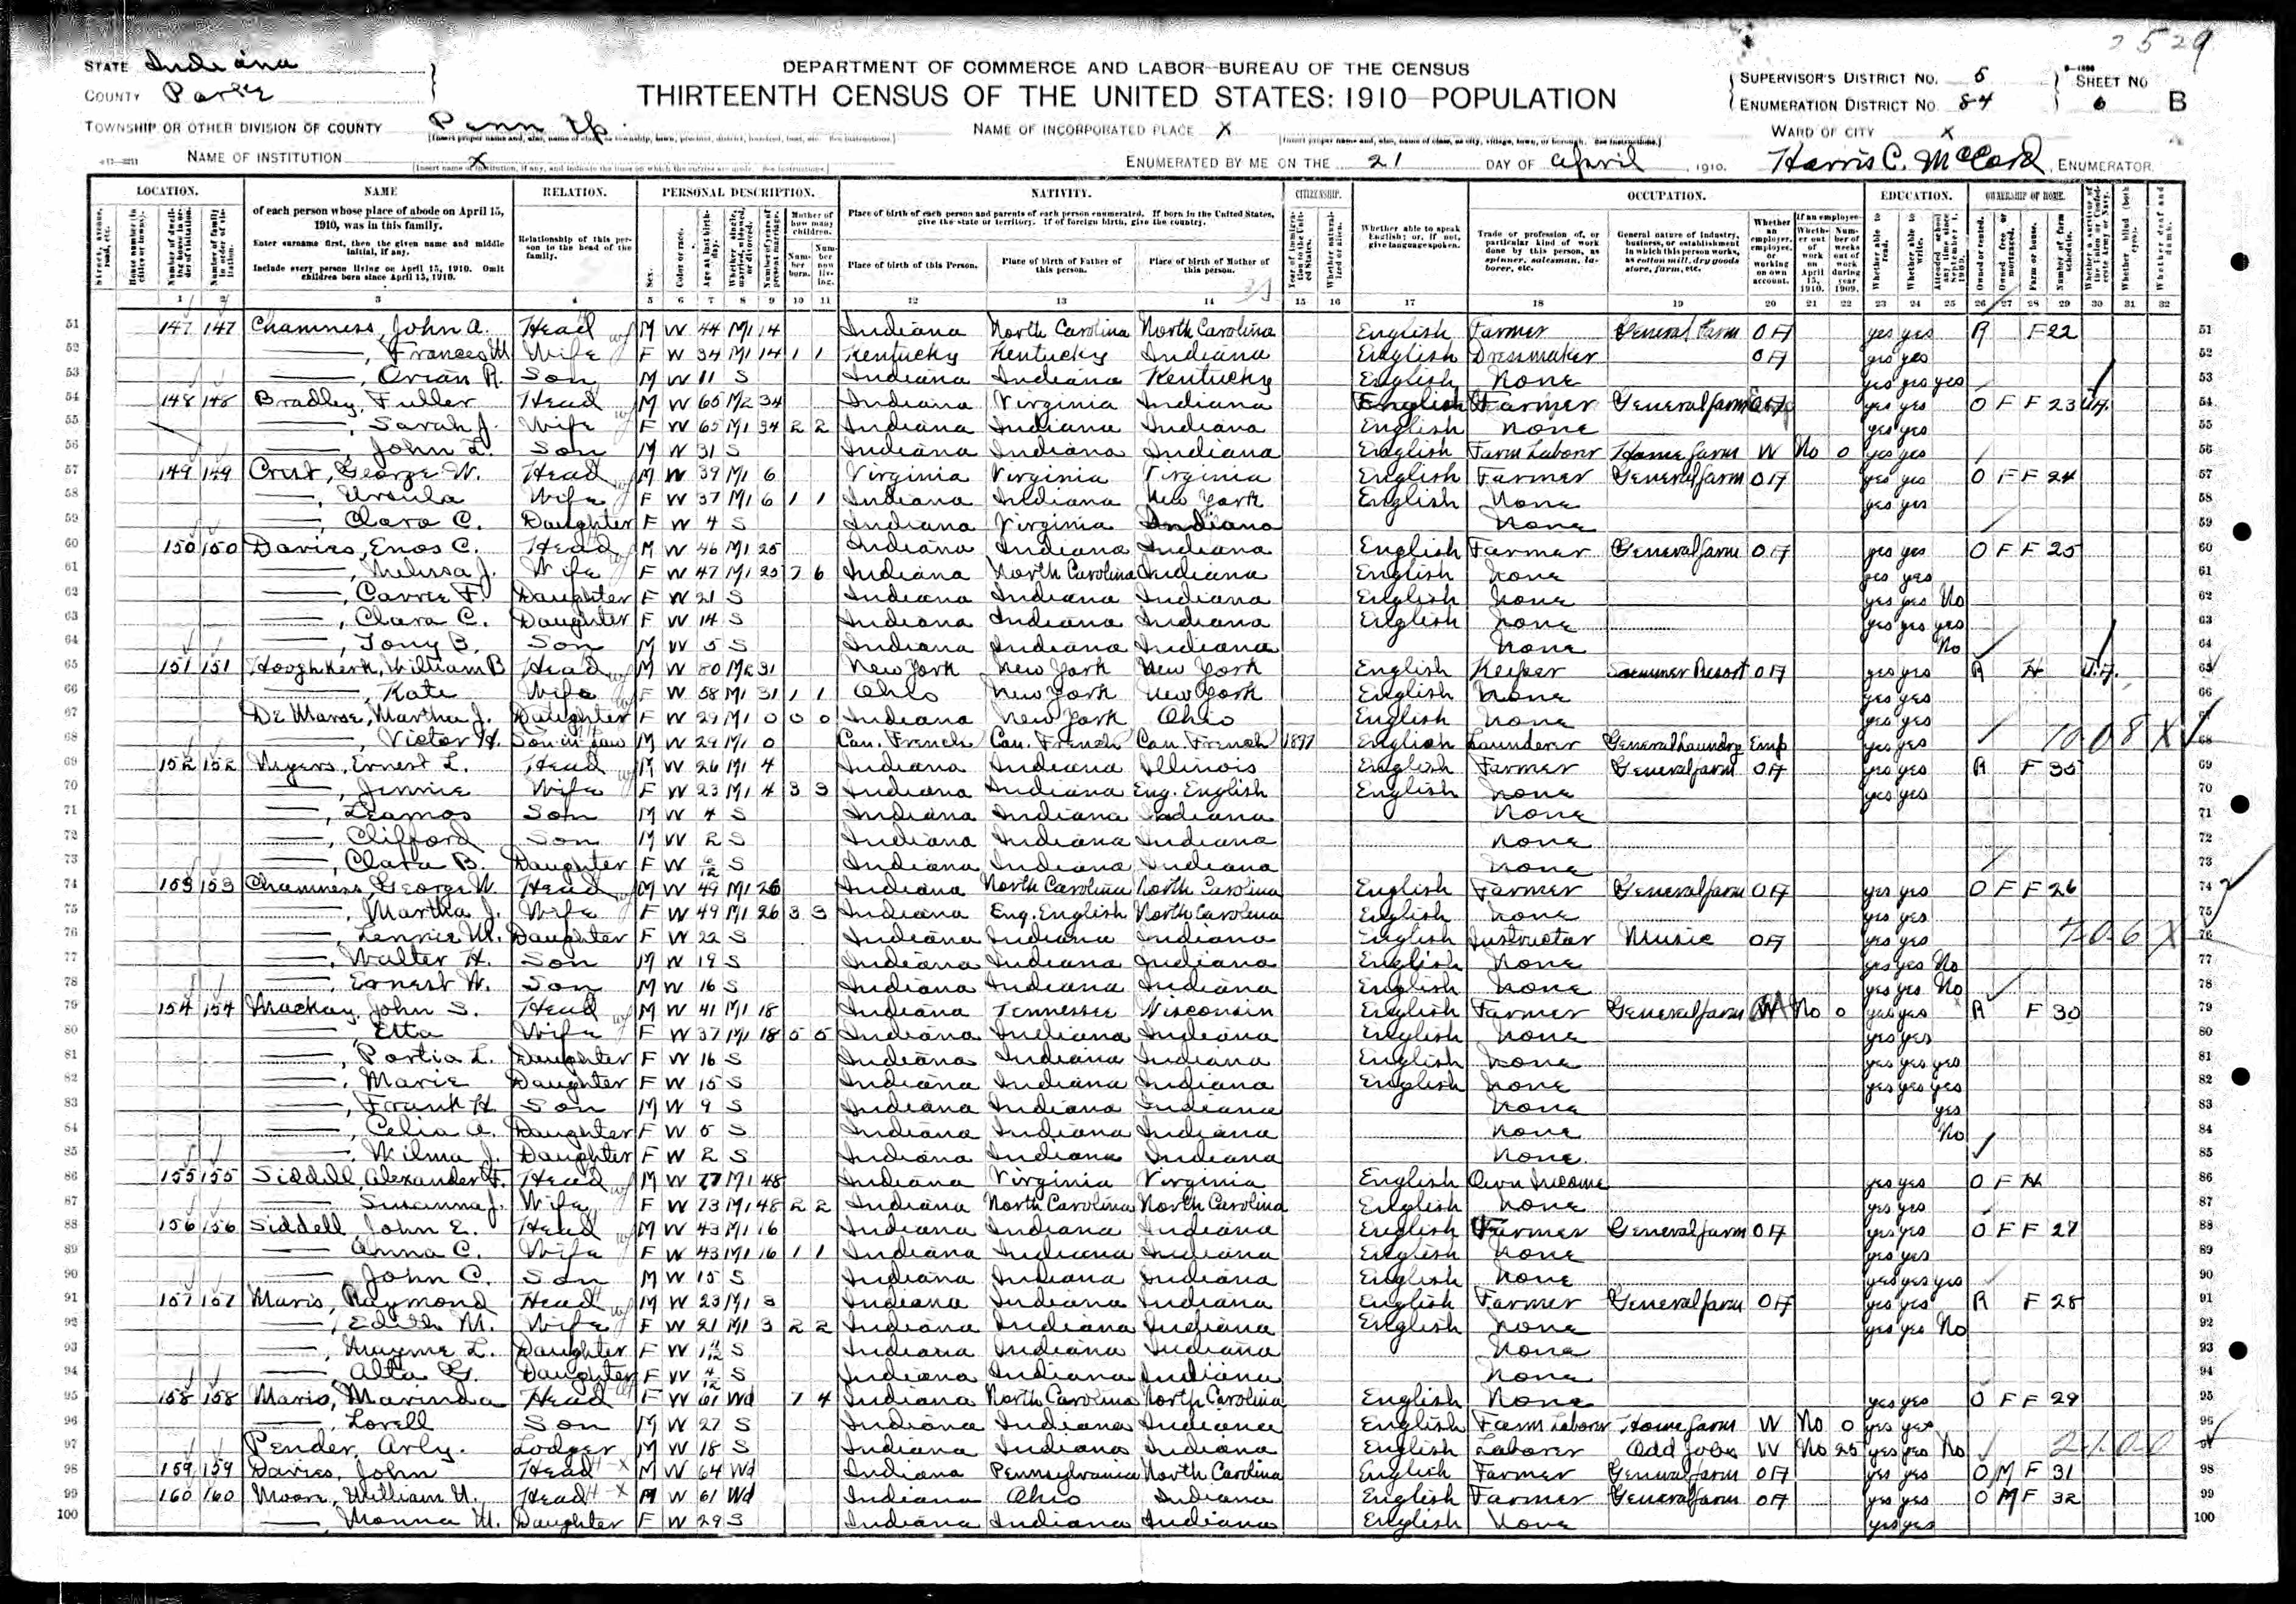 2529
STATE Indiana
COUNTY Parke
TOWNSHIP OR OTHER DIVISION OF COUNTY Penn Tp.
NAME OF INSTITUTION X
DEPARTMENT OF COMMERCE AND LABOR—BUREAU OF THE CENSUS
THIRTEENTH CENSUS OF THE UNITED STATES: 1910—POPULATION
NAME OF INCORPORATED PLACE X
ENUMERATED BY ME ON THE 21 DAY OF April, 1910. Harris C. McCord, ENUMERATOR
SUPERVISOR'S DISTRICT NO. 5
ENUMERATION DISTRICT NO. 84
SHEET NO 6 B
WARD OF CITY X
LOCATION. NAME RELATION. PERSONAL DESCRIPTION. NATIVITY. CITIZENSHIP. OCCUPATION. EDUCATION. OWNERSHIP OF HOME.
of each person whose place of abode on April 15, 1910, was in this family.
Enter surname first, then the given name and middle initial, if any.
Include every person living on April 15, 1910. Omit children born since April 15, 1910.
Relationship of this person to the head of the family.
Place of birth of each person and parents of each person enumerated. If born in the United States, give the state or territory. If of foreign birth, give the country.
Place of birth of this Person. Place of birth of Father of this person. Place of birth of Mother of this person.
Whether able to speak English; or, if not, give language spoken.
Trade or profession of, or particular kind of work done by this person, as spinner, salesman, laborer, etc.
General nature of industry, business, or establishment in which this person works, as cotton mill, dry goods store, farm, etc.
1 2 3 4 5 6 7 8 9 10 11 12 13 14 15 16 17 18 19 20 21 22 23 24 25 26 27 28 29 30 31 32
51 147 147 Chamness, John A. Head M W 44 M1 14 Indiana North Carolina North Carolina English Farmer General Farm OA yes yes R F 22 51
52 ——, Frances M Wife F W 34 M1 14 1 1 Kentucky Kentucky Indiana English Dressmaker OA yes yes 52
53 ——, Orian R. Son M W 11 S Indiana Indiana Kentucky English None yes yes yes 53
54 148 148 Bradley, Fuller Head M W 65 M2 34 Indiana Virginia Indiana English Farmer General farm yes yes O F F 23 UA. 54
55 ——, Sarah J. Wife F W 65 M1 34 2 2 Indiana Indiana Indiana English None yes yes 55
56 ——, John L. Son M W 31 S Indiana Indiana Indiana English Farm Laborer Home farm W No 0 yes yes 56
57 149 149 Crut, George W. Head M W 39 M1 6 Virginia Virginia Virginia English Farmer General farm OA yes yes O F F 24 57
58 ——, Ursula Wife F W 37 M1 6 1 1 Indiana Indiana New York English None yes yes 58
59 ——, Clara C. Daughter F W 4 S Indiana Virginia Indiana None 59
60 150 150 Davies, Enos C. Head M W 46 M1 25 Indiana Indiana Indiana English Farmer General farm OA yes yes O F F 25 60
61 ——, Melissa J. Wife F W 47 M1 25 7 6 Indiana North Carolina Indiana English None yes yes 61
62 ——, Carrie F. Daughter F W 21 S Indiana Indiana Indiana English None yes yes No 62
63 ——, Clara C. Daughter F W 14 S Indiana Indiana Indiana English None yes yes yes 63
64 ——, Tony B. Son M W 5 S Indiana Indiana Indiana None No 64
65 151 151 Hooghkerk, William B Head M W 80 M2 31 New York New York New York English Keeper Summer Resort OA yes yes R H U.A. 65
66 ——, Kate Wife F W 58 M1 31 1 1 Ohio New York New York English None yes yes 66
67 De Marse, Martha J. Daughter F W 29 M1 0 0 0 Indiana New York Ohio English None yes yes
68 ——, Victor H. Son in law M W 29 M1 0 Can. French Can. French Can. French 1897 English Launderer General Laundry Emp yes yes 1008 X 68
69 152 152 Myers, Ernest L. Head M W 26 M1 4 Indiana Indiana Illinois English Farmer General farm OA yes yes R F 35 69
70 ——, Jennie Wife F W 23 M1 4 3 3 Indiana Indiana Eng. English English None yes yes 70
71 ——, Leamos Son M W 4 S Indiana Indiana Indiana None 71
72 ——, Clifford Son M W 2 S Indiana Indiana Indiana None 72
73 ——, Clara B. Daughter F W S Indiana Indiana Indiana None 73
74 153 153 Chamness, George W. Head M W 49 M1 26 Indiana North Carolina North Carolina English Farmer General farm OA yes yes O F F 26 74
75 ——, Martha J. Wife F W 49 M1 26 3 3 Indiana Eng. English North Carolina English None yes yes 75
76 ——, Lennie M. Daughter F W 22 S Indiana Indiana Indiana English Instructor Music OA yes yes 76
77 ——, Walter H. Son M W 19 S Indiana Indiana Indiana English None yes yes No 77
78 ——, Ernest W. Son M W 16 S Indiana Indiana Indiana English None yes yes No 78
79 154 154 Mackay, John S. Head M W 41 M1 18 Indiana Tennessee Wisconsin English Farmer General farm No 0 yes yes R F 30 79
80 ——, Etta Wife F W 37 M1 18 5 5 Indiana Indiana Indiana English None yes yes 80
81 ——, Portia L. Daughter F W 16 S Indiana Indiana Indiana English None yes yes yes 81
82 ——, Marie Daughter F W 15 S Indiana Indiana Indiana English None yes yes yes 82
83 ——, Frank H. Son M W 9 S Indiana Indiana Indiana None yes 83
84 ——, Celia A. Daughter F W 5 S Indiana Indiana Indiana None No 84
85 ——, Wilma J. Daughter F W 2 S Indiana Indiana Indiana None 85
86 155 155 Siddell, Alexander F. Head M W 77 M1 48 Indiana Virginia Virginia English Own Income yes yes O F H 86
87 —— Susanna J. Wife F W 73 M1 48 2 2 Indiana North Carolina North Carolina English None yes yes 87
88 156 156 Siddell John E. Head M W 43 M1 16 Indiana Indiana Indiana English Farmer General farm OA yes yes O F F 27 88
89 —— Anna C. Wife F W 43 M1 16 1 1 Indiana Indiana Indiana English None yes yes 89
90 —— John C. Son M W 15 S Indiana Indiana Indiana English None yes yes yes 90
91 157 157 Maris, Raymond Head M W 23 M1 3 Indiana Indiana Indiana English Farmer General farm OA yes yes R F 28 91
92 ——, Edith M. Wife F W 21 M1 3 2 2 Indiana Indiana Indiana English None yes yes No 92
93 ——, Mayme L. Daughter F W S Indiana Indiana Indiana None 93
94 —— Alta G. Daughter F W S Indiana Indiana Indiana None 94
95 158 158 Maris, Marinda Head F W 61 Wd 7 4 Indiana North Carolina North Carolina English None yes yes O F F 29 95
96 ——, Lorell Son M W 27 S Indiana Indiana Indiana English Farm Laborer Home farm W No 0 yes yes 96
97 Pender, Arly. Lodger M W 18 S Indiana Indiana Indiana English Laborer Odd jobs W No 25 yes yes No 2100 97
98 159 159 Davies, John Head X M W 64 Wd Indiana Pennsylvania North Carolina English Farmer General farm OA yes yes O M F 31 98
99 160 160 Moore, William U. Head X M W 61 Wd Indiana Ohio Indiana English Farmer General farm OA yes yes O M F 32 99
100 ——, Monna M. Daughter F W 29 S Indiana Indiana Indiana English None yes yes 100